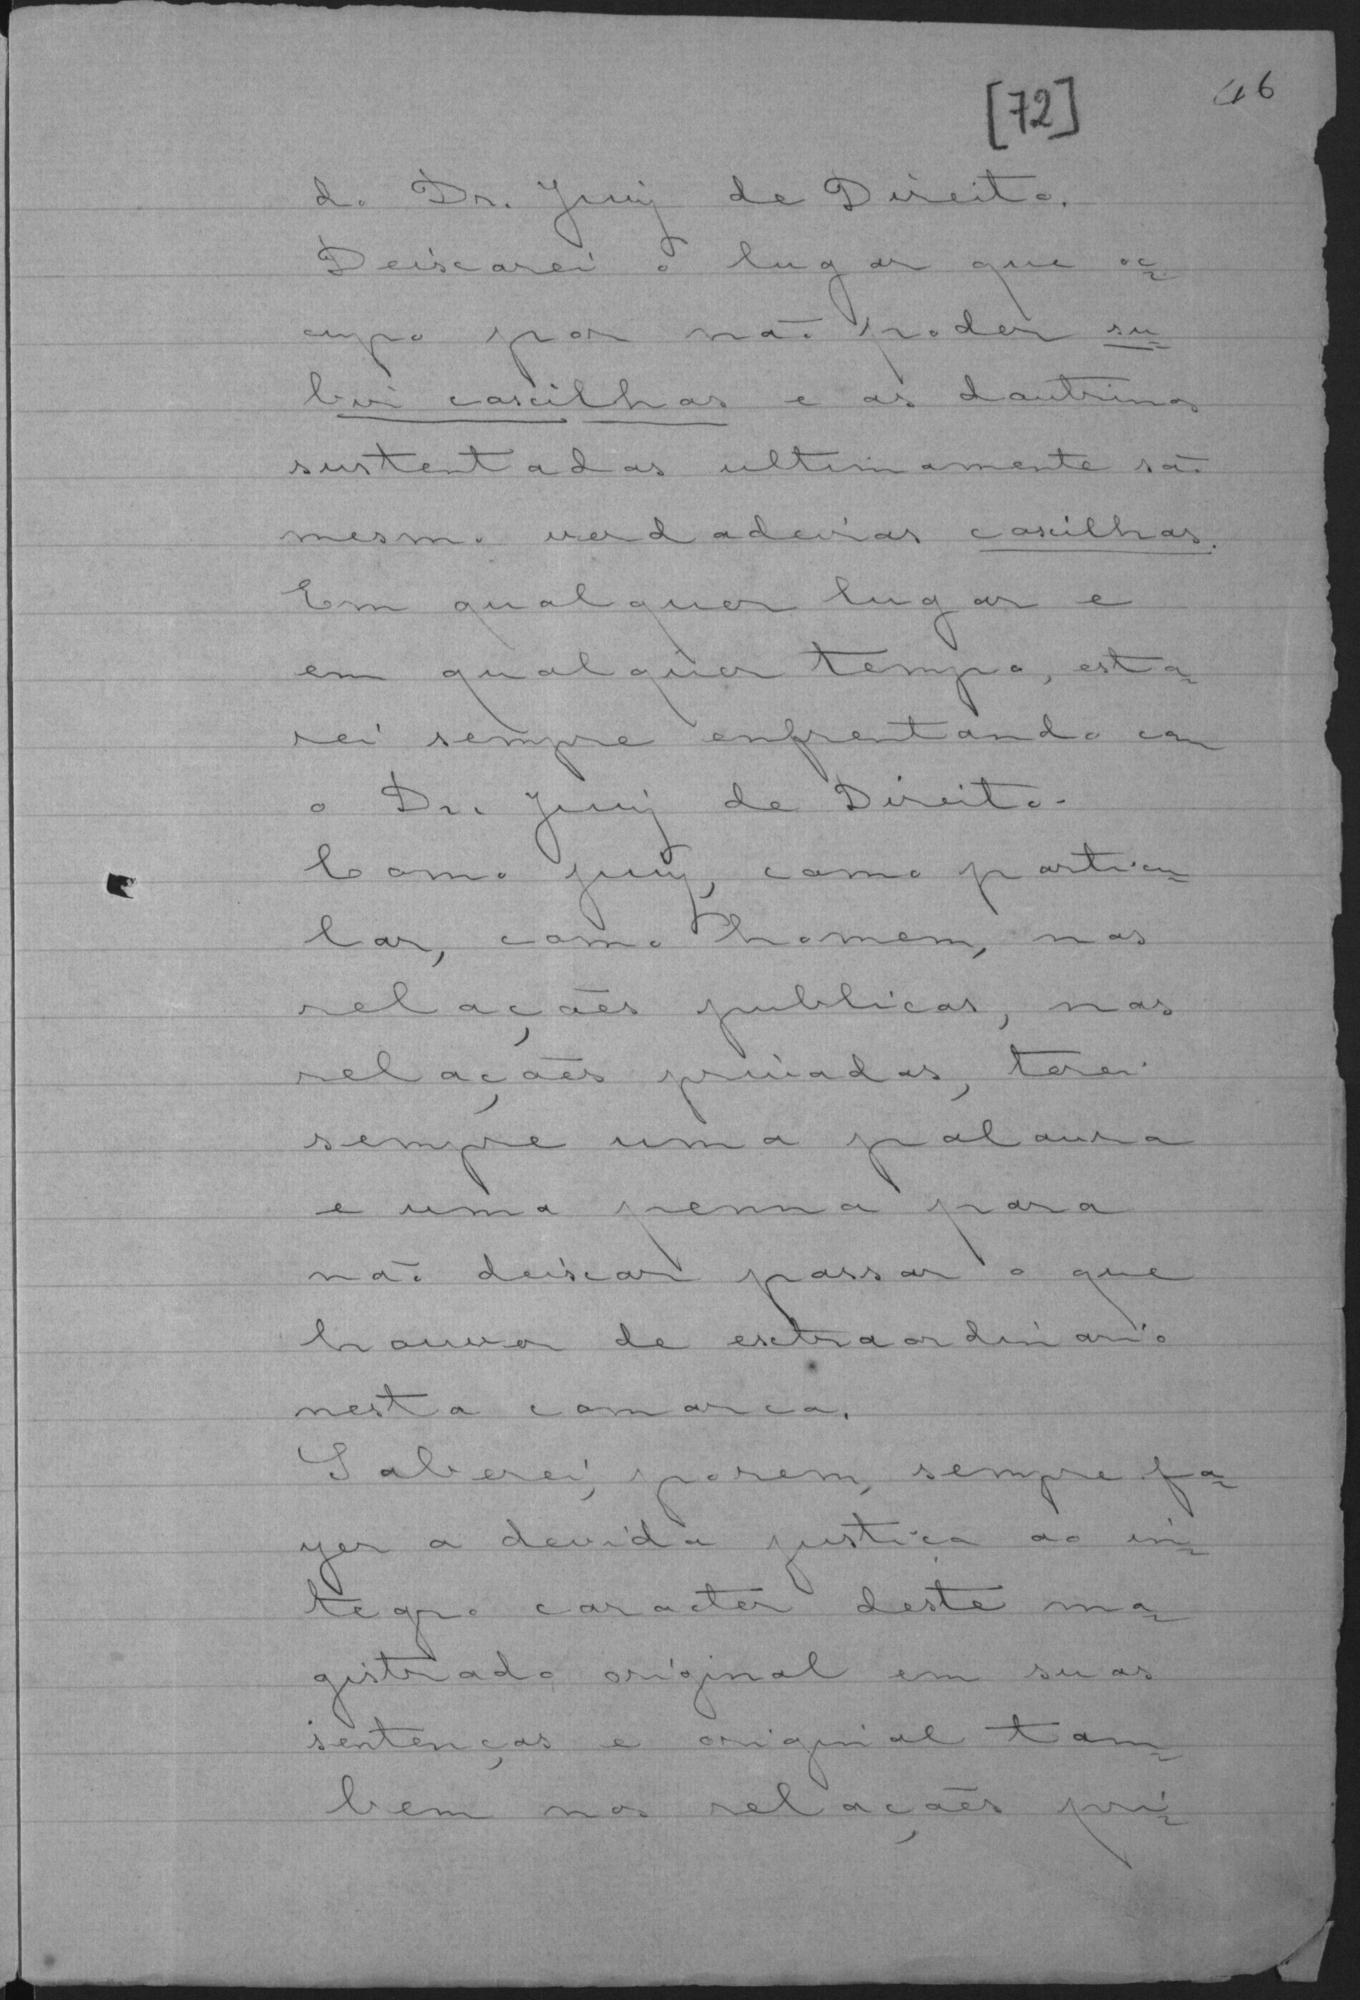 [72]
46
do Dr. Juiz de Direito.
Deixarei o lugar que oc=
cupo por não poder su=
bir coxilhas e as doutrinas
sustentadas ultimamente são
mesmo verdadeiras coxilhas.
Em qualquer lugar e
em qualquer tempo, esta=
rei sempre enfrentando com
o Dr. Juiz de Direito.
Como juiz, como particu=
lar, como homem, nas
relações publicas, nas
relações privadas, terei
sempre uma palavra
e uma penna para
não deixar passar o que
houver de extraordinario
nesta comarca.
Saberei, porem, sempre fa=
zer a devida justiça ao in=
tegro caracter deste ma=
gistrado original em suas
sentenças e original tam=
bem nas relações pri=